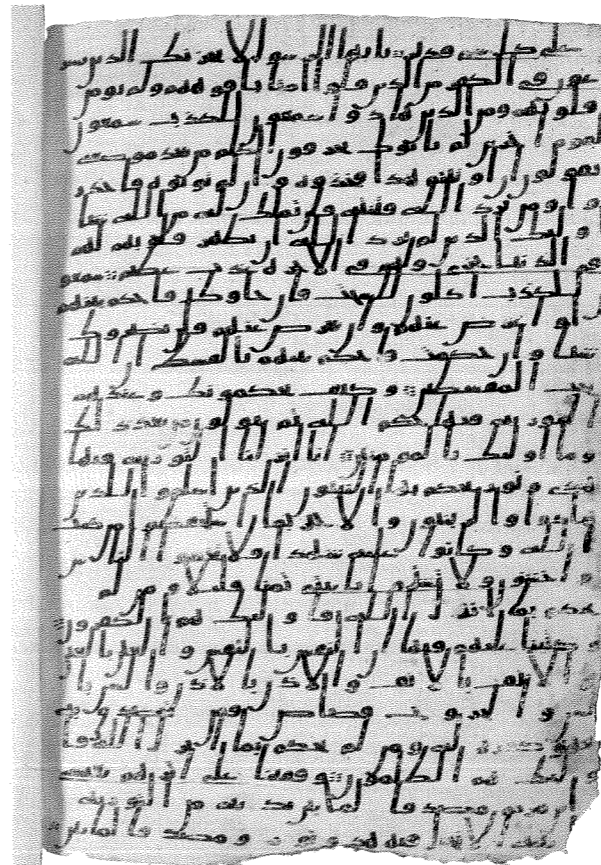 على كل شى قدير يايها الرسول لا يحزنك الذين يسر
عون فى الكفر من الذين قلوا امنا بافوههم ولم تومن
قلوبهم ومن الذين هادوا سمعون للكذب سمعون
لقوم اخرين لم ياتوك يحرفون الكلم من بعد موضعه
يقولون ان اوتيتم هذا فخذوه وان لم توتوه فاحذر
وا ومن يرد الله فتنته فلن تملك له من الله شيا
اوليك الذين لم يرد الله ان يطهر قلوبهم لهم
فى الدنيا خزى ولهم فى الاخرة عذاب عظيم سمعو
ن للكذب اكلون للسحت فان جاوك فاحكم بينهم
او اعرض عنهم وان تعرض عنهم فلن يضروك
شيا وان حكمت فاحكم بينهم بالقسط ان الله
يحب المقسطين وكيف يحكمونك وعندهم
التورية فيها حكم الله ثم يتولون من بعد ذلك
وما اوليك بالمومنين انا انزلنا التورية فيها
هدى ونور يحكم بها النبيون الذين اسلموا للذين
هادوا والربنيون والاحبار بما استحفظوا من كتب
الله وكانوا عليه شهدا فلا تخشوا الناس
واخشون ولا تشتروا بايتى ثمنا قليلا ومن لم
يحكم بما انزل الله فاوليك هم الكفرون
وكتبنا عليهم فيها ان النفس بالنفس والعين بالعين
والانف بالانف والاذن بالاذن والسن با
لسن والجروح قصاص فمن تصدق به
فهو كفارة له ومن لم يحكم بما انزل الله فا
وليك هم الظلمون وقفينا على اثرهم بعيسى
ابن مريم مصدقا لما بين يديه من التورية
الانجيل فيه هدى ونور ومصدقا لما بين